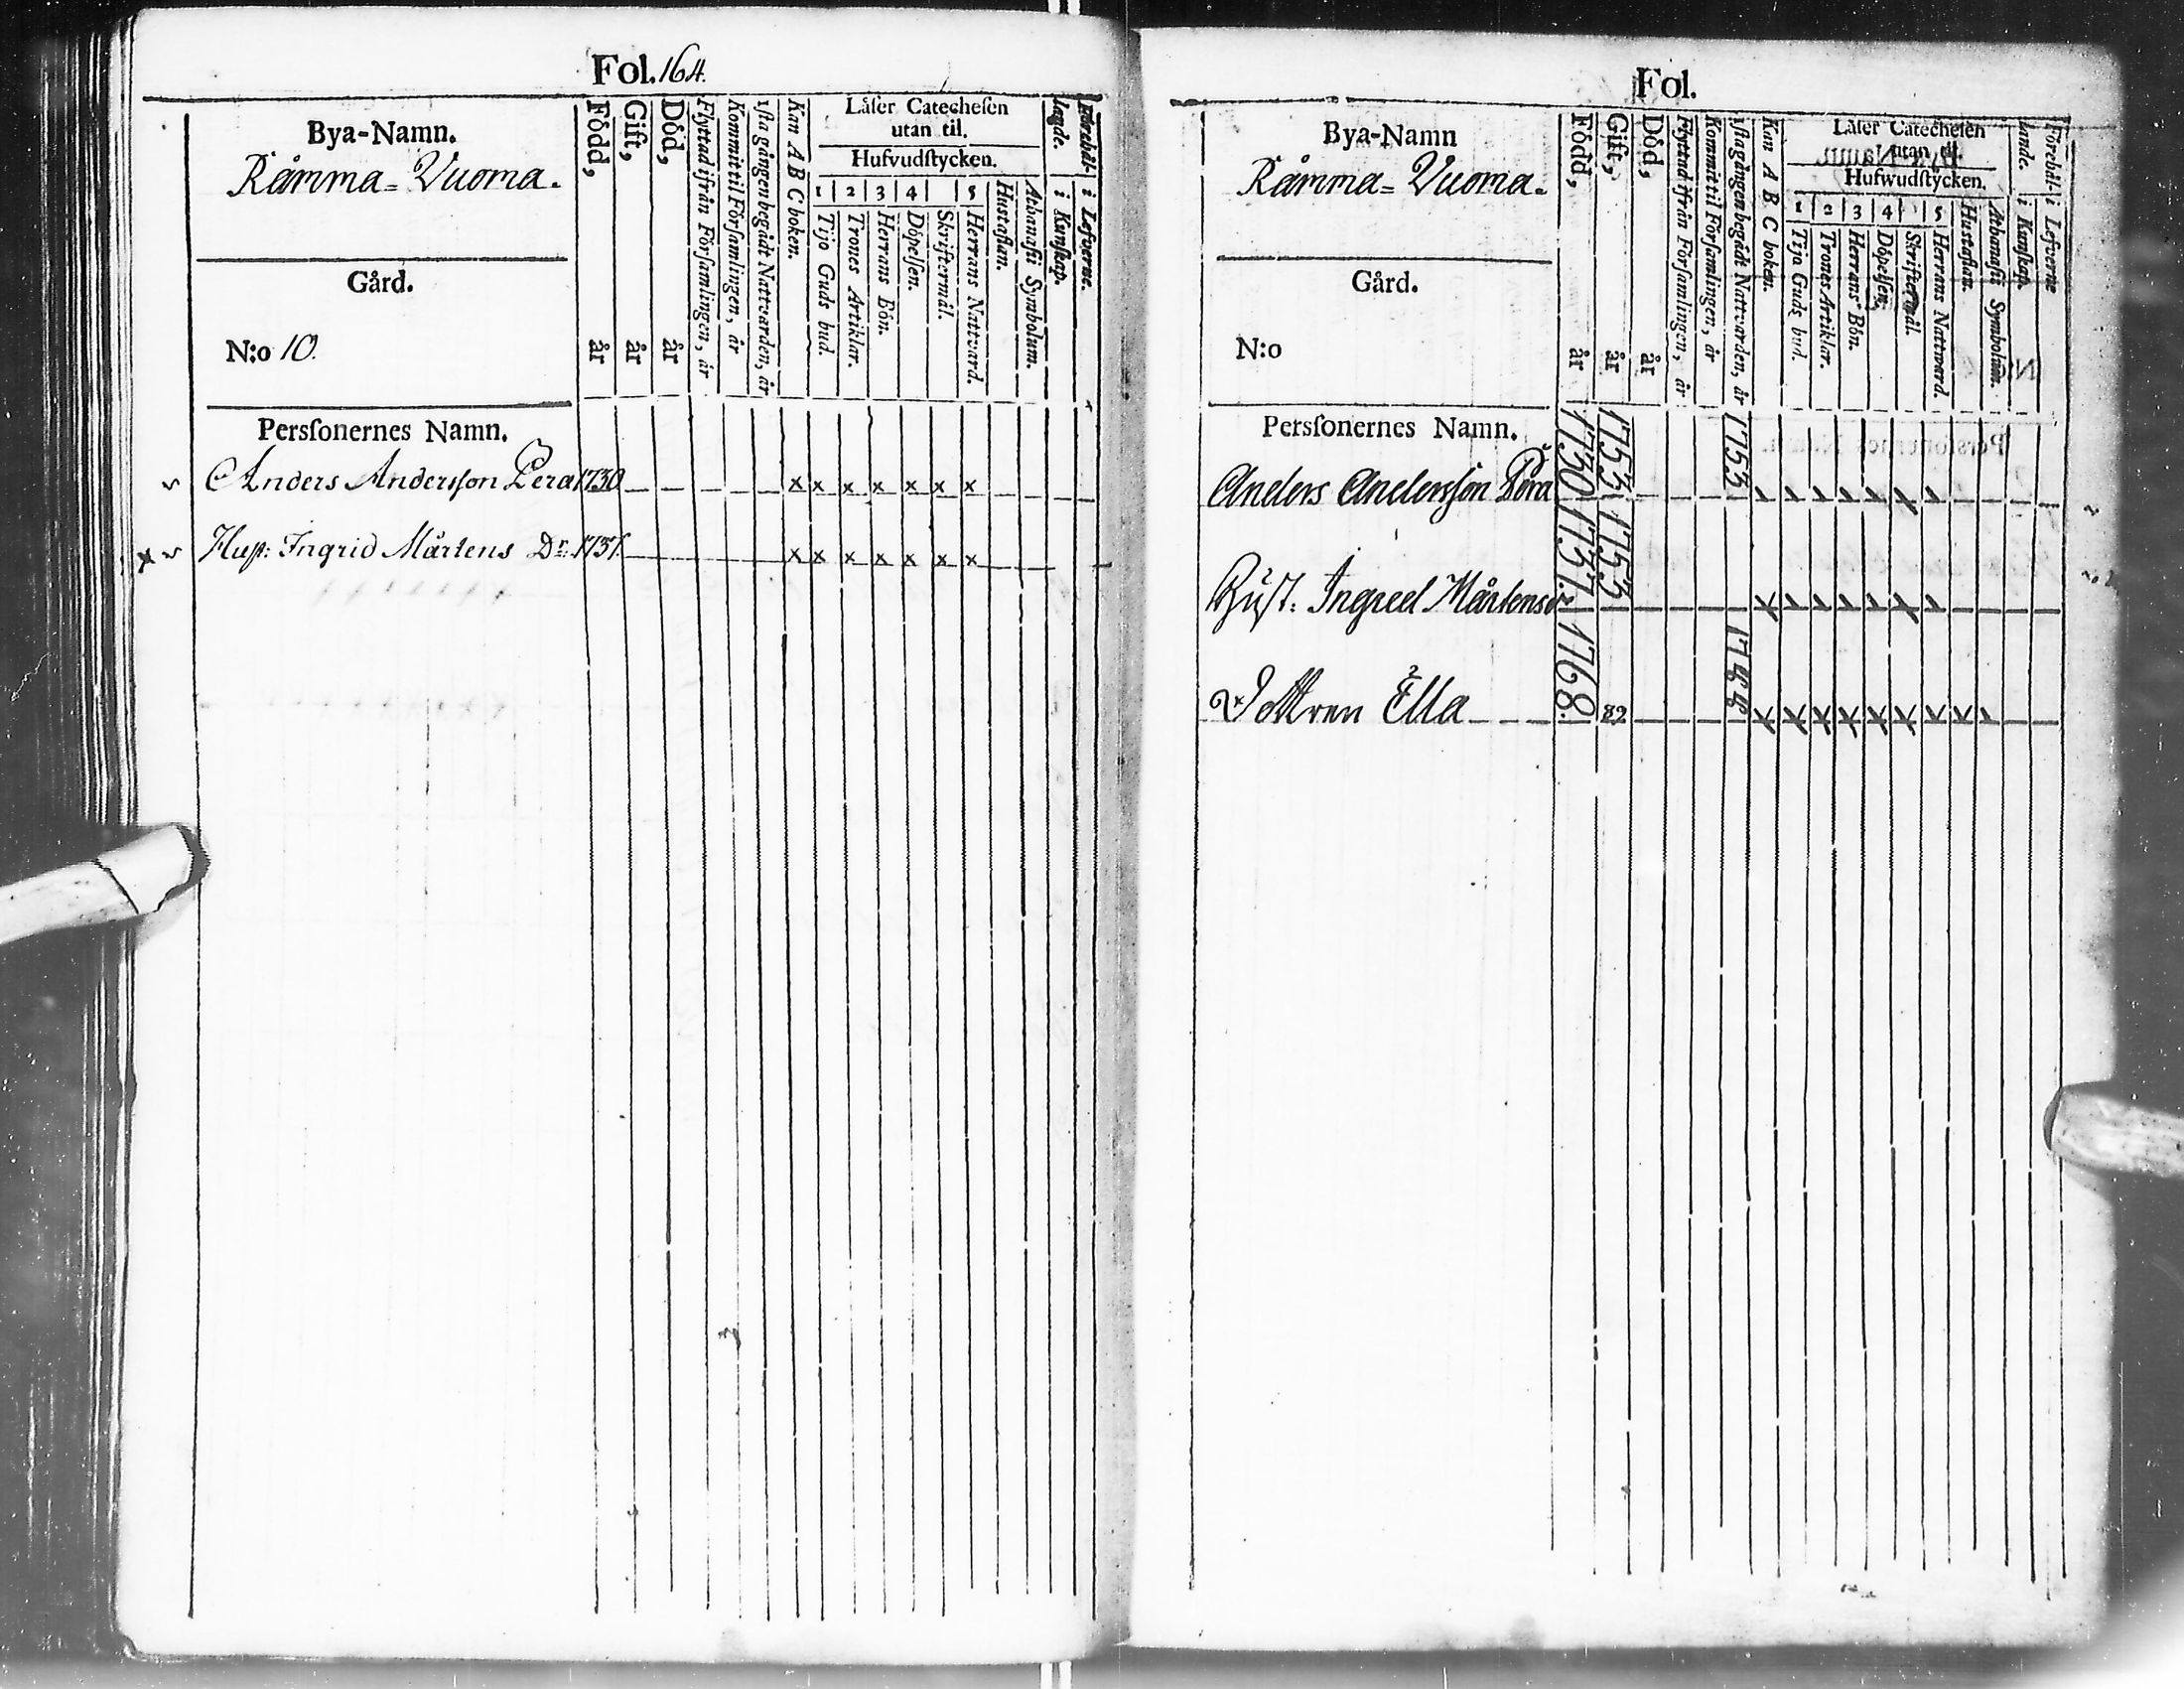 Fol. 164.
Bya-Namn.
Råmma= Vuoma.
Gård.
N:o 10.
Född, år
Gift, år
Död, år
Flyttad ifrån Församlingen, år
Kommit til Församlingen, år
1sta gången begådt Nattvarden, år
Kan A B C boken.
Låser Catechesen
utan til.
Hufvudstycken.
1 2 3 4 5
Tijo Guds bud.
Trones Artiklar.
Herrans Bön.
Döpelsen.
Skriftermål.
Herrans Nattvard.
Hustaflan.
Athanasii Symbolum.
i Kunskap.
i Lefverne.
Personernes Namn.
Anders Andersson Pera 1730 x x x x x x x
Hust: Ingrid Mårtens Dr. 1737. x x x x x x x
Fol.
Bya-Namn
Råmma= Vuoma.
Gård.
N:o
Född, år
Gift, år
Död, år
Flyttad ifrån Församlingen, år
Kommit til Församlingen, år
1sta gången begådt Nattvarden, år
Kan A B C boken.
Låser Catechesen
utan til.
Hufwudstycken.
1 2 3 4 5
Tijo Guds bud.
Trones Artiklar.
Herrans Bön.
Döpelsen.
Skriftermål.
Herrans Nattward.
Hustaflan.
Athanasii Symbolum.
Förehål-
lande.
i Kunskap.
i Lefverne
Personernes Namn.
Anders Andersson Pera 1730 1753 1753
Hust: Ingred Mårtensdr 1737. 1753
Dottren Ella 1768. 89